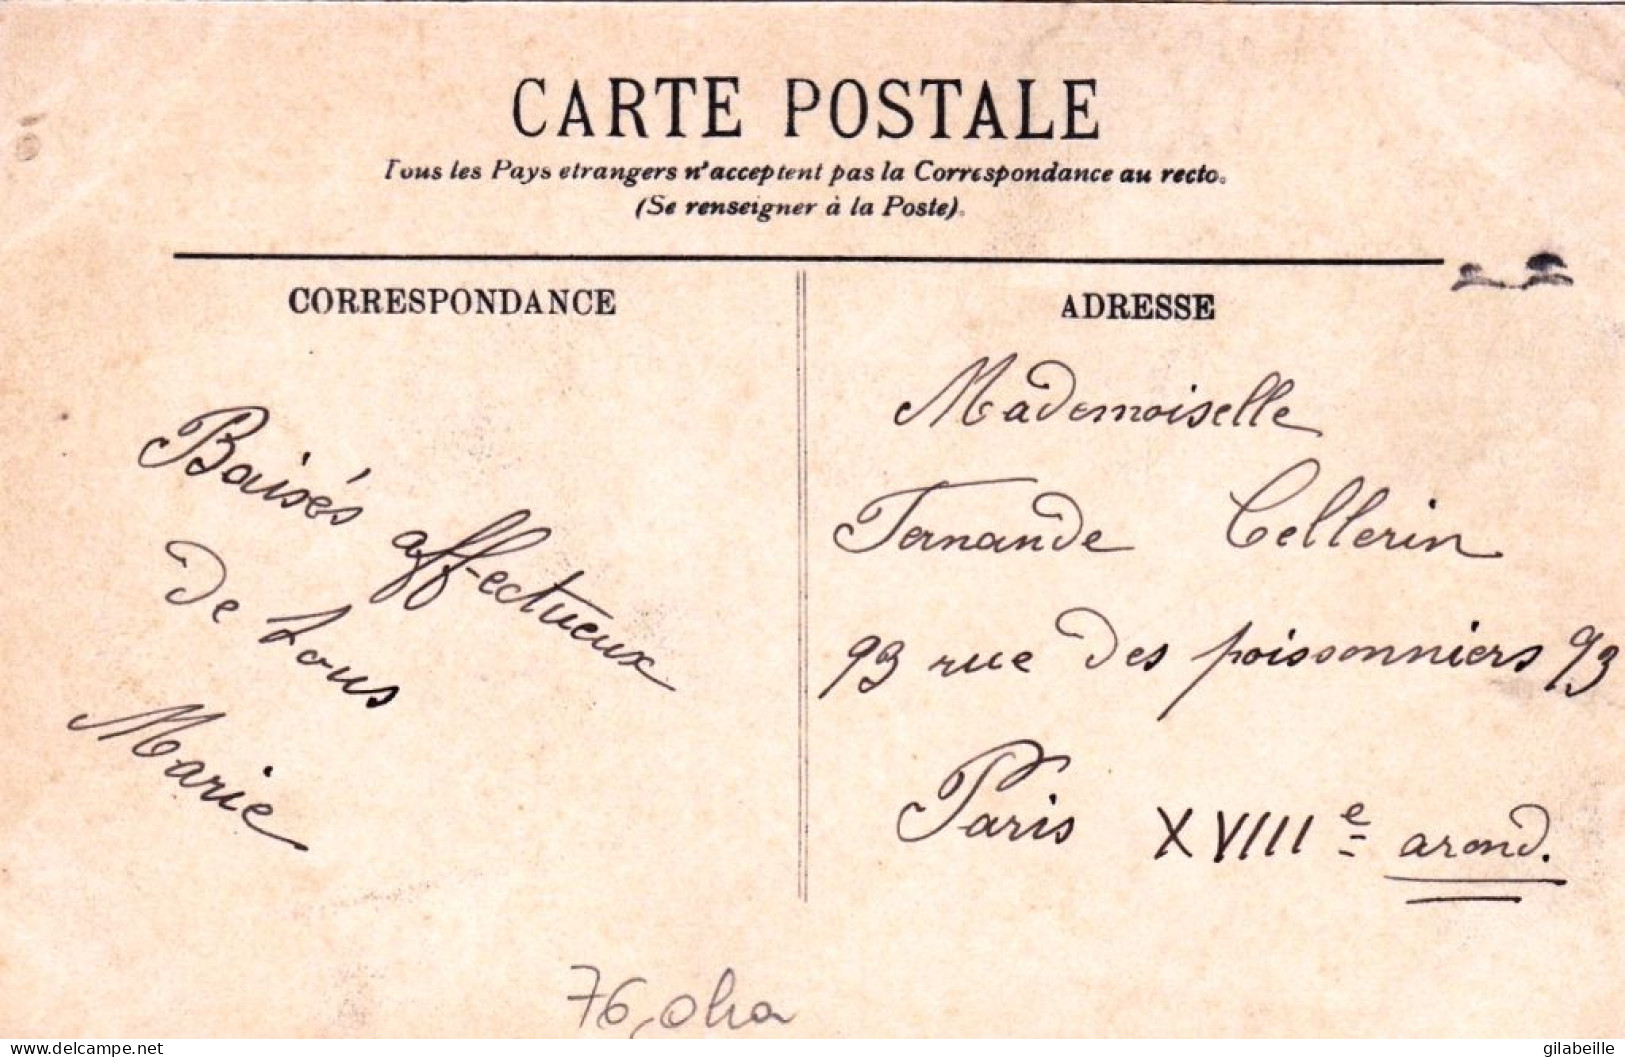 CARTE POSTALE
Tous les Pays etrangers n'acceptent pas la Correspondance au recto.
(Se renseigner à la Poste).
CORRESPONDANCE
Baisés affectueux
de tous
Marie
ADRESSE
Mademoiselle
Fernande Cellerin
93 rue des poissonniers 93
Paris XVIIIe arond.
76,
delcampe.net
gilabeille